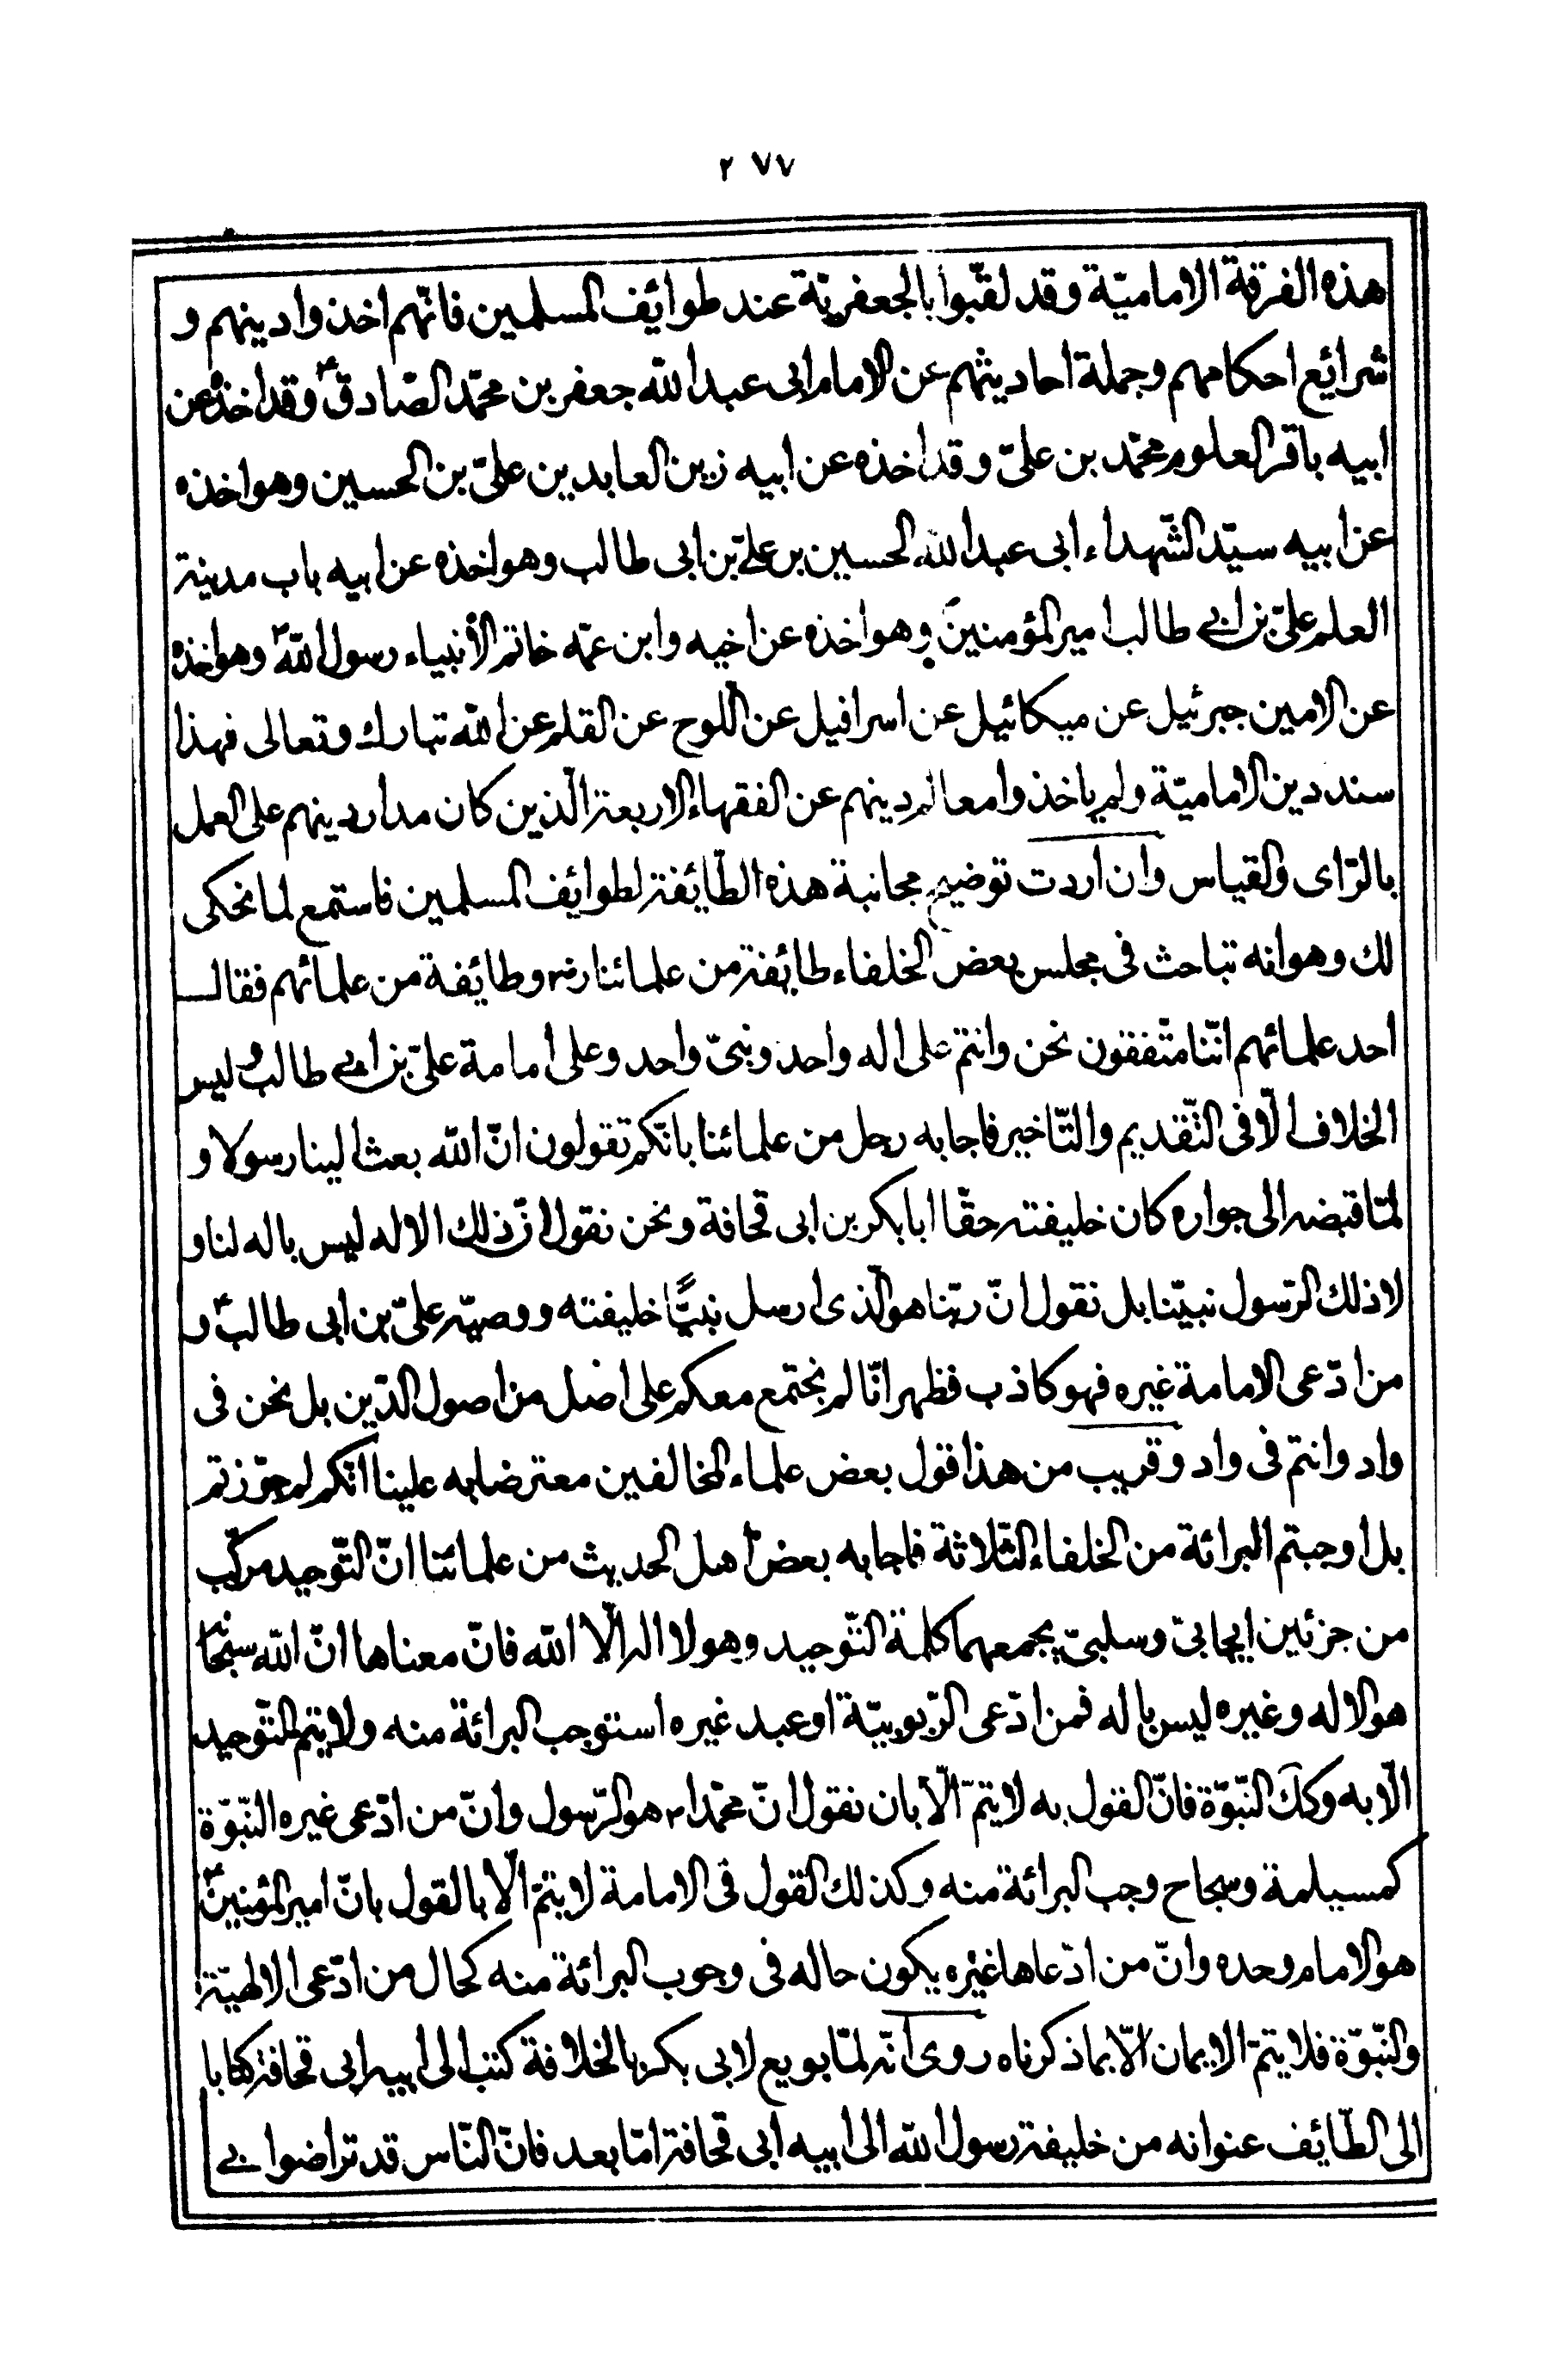 ٢٧٧
هذه الفرقة الاماميّة وقد لقّبوا بالجعفريّة عند طوائف المسلمين فانّهم اخذوا دينهم و
شرائع احكامهم وجملة احاديثهم عن الامام ابى عبد اللّه جعفر بن محمّد الصّادقؑ وقد اخذه عن
ابيه باقر العلوم محمّد بن علىّ وقد اخذه عن ابيه زين العابدين علىّ بن الحسين وهو اخذه
عن ابيه سيّد الشّهداء ابى عبد اللّه الحسين بن علىّ بن ابى طالب وهو اخذه عن ابيه باب مدينة
العلم علىّ بن ابى طالب امير المؤمنينؑ وهو اخذه عن اخيه وابن عمّه خاتم الأنبياء رسول اللّهؐ وهو اخذه
عن الامين جبرئيل عن ميكائيل عن اسرافيل عن اللّوح عن القلم عن اللّه تبارك وتعالى فهذا
سند دين الاماميّة ولم ياخذوا معالم دينهم عن الفقهاء الاربعة الّذين كان مدار دينهم على العمل
بالرّاى والقياس وان اردت توضيح مجانبة هذه الطّائفة لطوائف المسلمين فاستمع لما نحكى
لك وهو انه تباحث فى مجلس بعض الخلفاء طائفة من علمائنا رض وطائفة من علمائهم فقال
احد علمائهم انّنا متّفقون نحن وانتم على اله واحد ونبىّ واحد وعلى امامة علىّ بن ابى طالبؑ وليس
الخلاف الّا فى التّقديم والتّاخير فاجابه رجل من علمائنا بانّكم تقولون انّ اللّه بعث الينا رسولا و
لمّا قبضه الى جواره كان خليفته حقّا ابا بكر بن ابى قحافة ونحن نقول انّ ذلك الاله ليس باله لنا و
لا ذلك الرّسول نبيّنا بل نقول انّ ربّنا هو الّذى ارسل نبيًّا خليفته ووصيّه علىّ بن ابى طالبؑ و
من ادّعى الامامة غيره فهو كاذب فظهر انّا لم نجتمع معكم على اصل من اصول الدّين بل نحن فى
واد وانتم فى واد وقريب من هذا قول بعض علماء المخالفين معترضا به علينا انّكم لم جوّزتم
بل اوجبتم البرائة من الخلفاء الثّلاثة فاجابه بعض اهل الحديث من علمائنا انّ التّوحيد مركّب
من جزئين ايجابىّ وسلبىّ يجمعهما كلمة التّوحيد وهو لا اله الّا اللّه فانّ معناها انّ اللّه سبحانه
هو الاله وغيره ليس باله فمن ادّعى الرّبوبيّة او عبد غيره استوجب البرائة منه ولا يتم التّوحيد
الّا به وكك النّبوّة فانّ القول به لا يتمّ الّا بان نقول انّ محمّدا ص هو الرّسول وانّ من ادّعى غيره النّبوّة
كمسيلمة وسجاح وجب البرائة منه وكذلك القول فى الامامة لا يتمّ الّا بالقول بانّ امير المؤمنينؑ
هو الامام وحده وانّ من ادّعاها غيره يكون حاله فى وجوب البرائة منه كحال من ادّعى الالهيّة
والنّبوّة فلا يتمّ الايمان الّا بما ذكرناه روى انّه لمّا بويع لابى بكر بالخلافة كتب الى ابيه ابى قحافة كتابا
الى الطّائف عنوانه من خليفة رسول اللّه الى ابيه ابى قحافة امّا بعد فانّ النّاس قد تراضوا بى